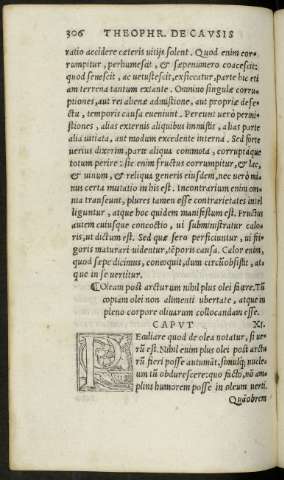 306 THEOPHR. DE CAVSIS
ratio accidere cæteris uitijs solent. Quod enim cor-
rumpitur, perhumescit, & sæpenumero coacescit:
quod senescit, ac uetustescit, exsiccatur, parte hic eti
am terrena tantum extante. Omnino singulæ corru-
ptiones, aut rei alienæ admistione, aut propriæ defe-
ctu, temporis causa eueniunt. Pereunt uerò permi-
stiones, alias externis aliquibus immistis, alias parte
alia uitiata, aut modum excedente interna. Sed breue
uerius dixerim, parte aliqua commota, corruptaque
totum perire: sic enim fructus corrumpitur, & lac,
& uinum, & reliqua generis eiusdem, nec uerò mi-
nus certa mutatio in his est. In contrarium enim om-
nia transeunt, plures tamen esse contrarietates intel
liguntur, atque hoc quidem manifestum est. Fructus
autem cuiusque concoctio, ui subministratur calo-
ris, ut dictum est. Sed quæ sero perficiuntur, ui fri-
goris maturari uidentur, tēporis causa. Calor enim,
quod sæpe dicimus, concoquit, dum circūobsistit: at-
que in se uertitur.
Oleam post arcturum nihil plus olei fiare. Tū
copiam olei non alimenti ubertate, atque in
pleno corpore oliuarum collocandam esse.
CAPVT XI.
PEculiare quod de olea notatur, si ue-
rū est. Nihil enim plus olei post arctu
rū fieri posse autumāt. simulq; nucle-
um tū obdurescere: quo facto, nō am-
plius humorem posse in oleum uerti.
Quāobrem